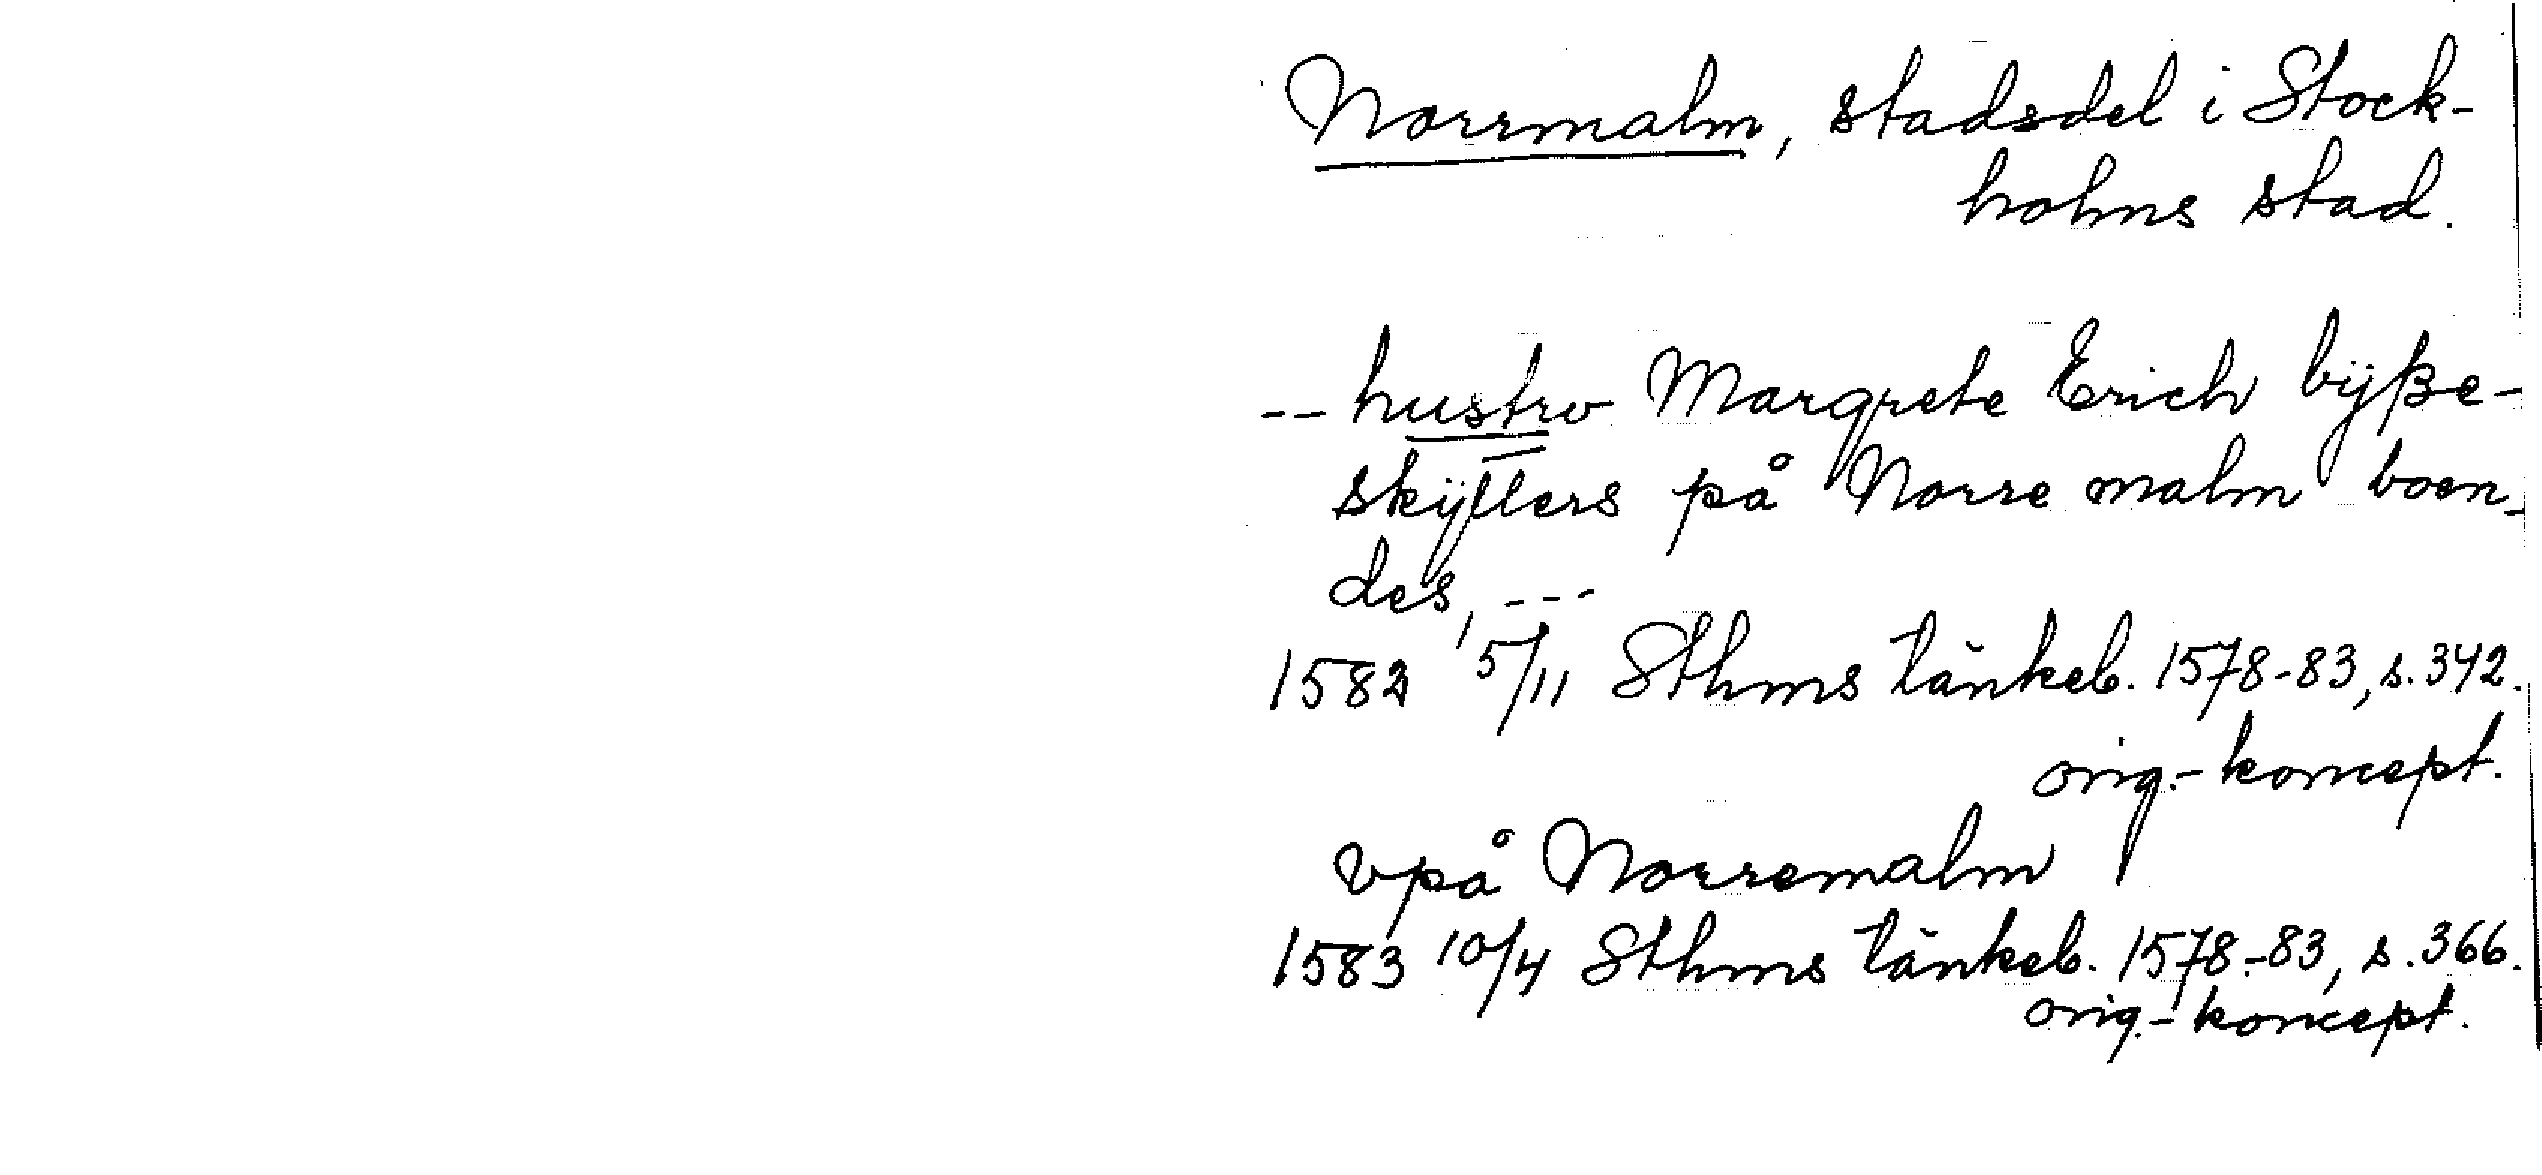 Norrmalm, stadsdel i Stock-
holms stad.
-- hustrv Margrete Erich bÿße-
skÿtters på Norre malm boen-
des, ---
1582 5/11 Sthms tänkeb. 1578-83, s. 342.
orig.-koncept.
vpå Norremalm
1583 10/4 Sthms tänkeb. 1578-83, s. 366.
orig.-koncept.